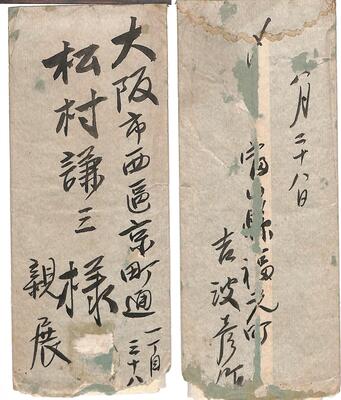 大阪市西區京町通一丁目三十八
松村謙三様
親展
〆
八月二十八日
富山縣福光町
吉波彦作